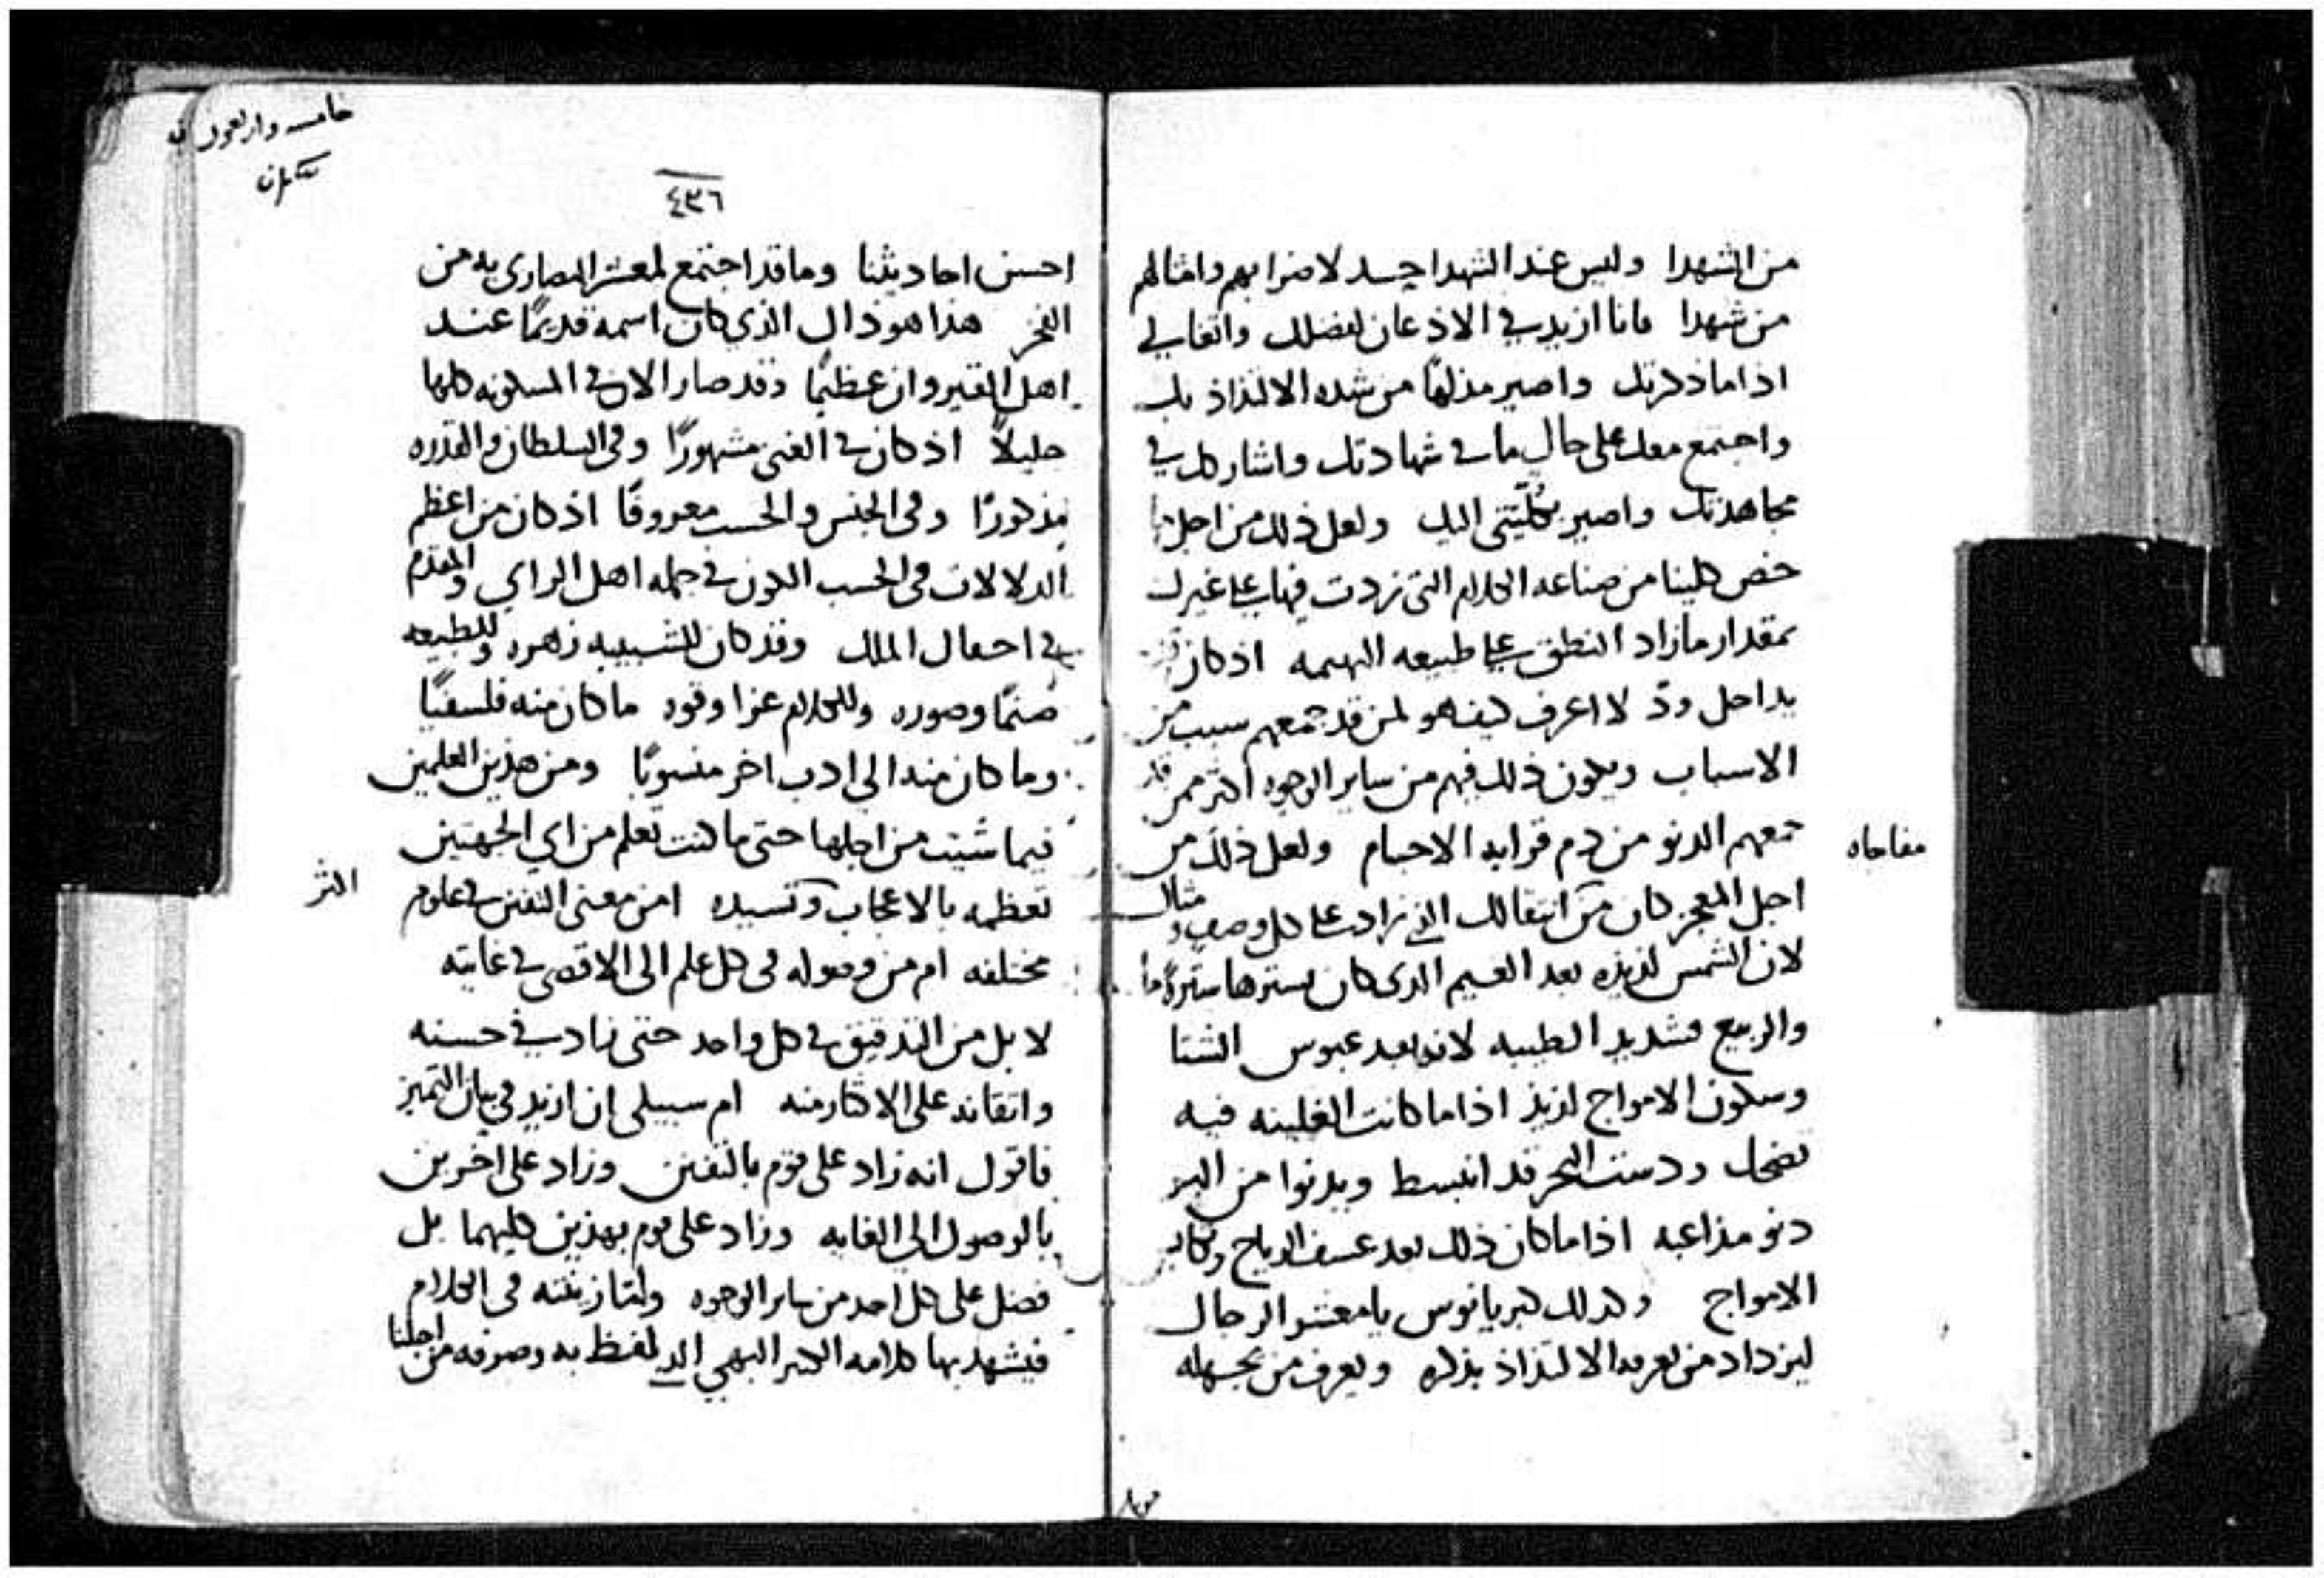 من الشهدا وليس عند الشهدا حسد لاضرابهم وامثالهم
من شهدا فانا ازيد في الاذعان لفضلك واتفاني
اذا ما ذكرتك واصير مذلها من شده الالتذاذ بك
واجتمع معك على حال ما في شهادتك واشاركك في
مجاهدتك واصير بكليتي اليك ولعل ذلك من اجل
خص كلينا من صناعه الكلام التي زدت فيها على غيرك
بمقدار ما زاد النطق على طبيعه البهيمه اذ كان
يداخل ود لا اعرف كيف هو لمن قد جمعهم سبب من
الاسباب ويكون ذلك فيهم من ساير الوجوه اكثر ممن قد
جمعهم الدنو من دم قرابه الاجسام ولعل ذلك من
مفاجاه
اجل المعجز كان من انتقالك الذي زاد على كل وصف ومثال
لان الشمس لذيذه بعد الغيم الذي كان يسترها ستره ما
والربيع فشديد الطيبه لانه بعد عبوس الشتا
وسكون الامواج لذيذ اذا ما كانت الغلينه فيه
تضحك ودست البحر قد انبسط ويدنوا من البر
دنو مداعبه اذا ما كان ذلك بعد عسف الرياح وتكابر
الامواج وكذلك كبريانوس يا معشر الرجال
ليزداد من يعرفه الالتذاذ بذكره ويعرف من يجهله
خامسه واربعون
٤٣٦
احسن احاديثنا وما قد اجتمع لمعشر النصارى به من
الفخر هذا هو ذاك الذي كان اسمه قديمًا عند
اهل القيروان عظيمًا وقد صار الان في المسكونه كلها
جليلاً اذ كان في الغنى مشهورًا وفي السلطان والقدره
مذكورًا وفي الجنس والحسب معروفًا اذ كان من اعظم
الدلالات في الحسب الكون في جمله اهل الراي والتقدم
في احفال الملك وقد كان للشبيبه زهره وللطبيعه
صنمًا وصوره وللكلام عزا وقوه ما كان منه فلسفيًا
وما كان منه الى ادب اخر منسوبًا ومن هذين العلمين
فيما شيت من اجلها حتى ما كنت تعلم من اي الجهتين
اكثر
تعظمه بالاعجاب وتسيده امن معنى التفنن في علوم
مختلفه ام من وصوله في كل علم الى الاقصى في غايته
لا بل من التدقيق في كل واحد حتى زاد في حسنه
واتقانه على الاكثار منه ام سبيلي ان ازيد في بيان التميز
فاقول انه زاد على قوم بالتفنن وزاد على اخرين
بالوصول الى الغايه وزاد على قوم بهذين كليهما بل
فضل على كل احد من ساير الوجوه واما زينته في الكلام
فيشهد بها كلامه الكثير البهي الذي لفظ به وصرفه من اجلنا